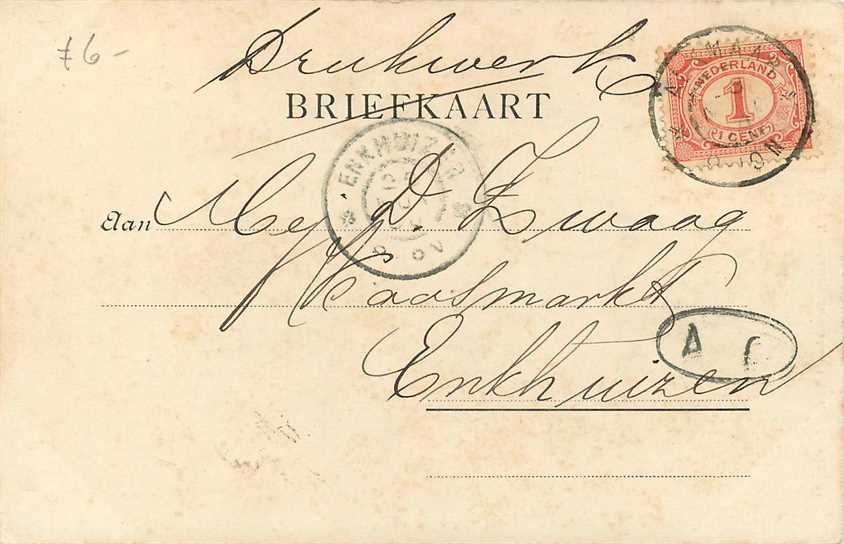 f 6-
Drukwerk
BRIEFKAART
NEDERLAND
1
CENT
ENKHUIZEN
Aan Mej D. Zwaag
Kaasmarkt
Enkhuizen
A